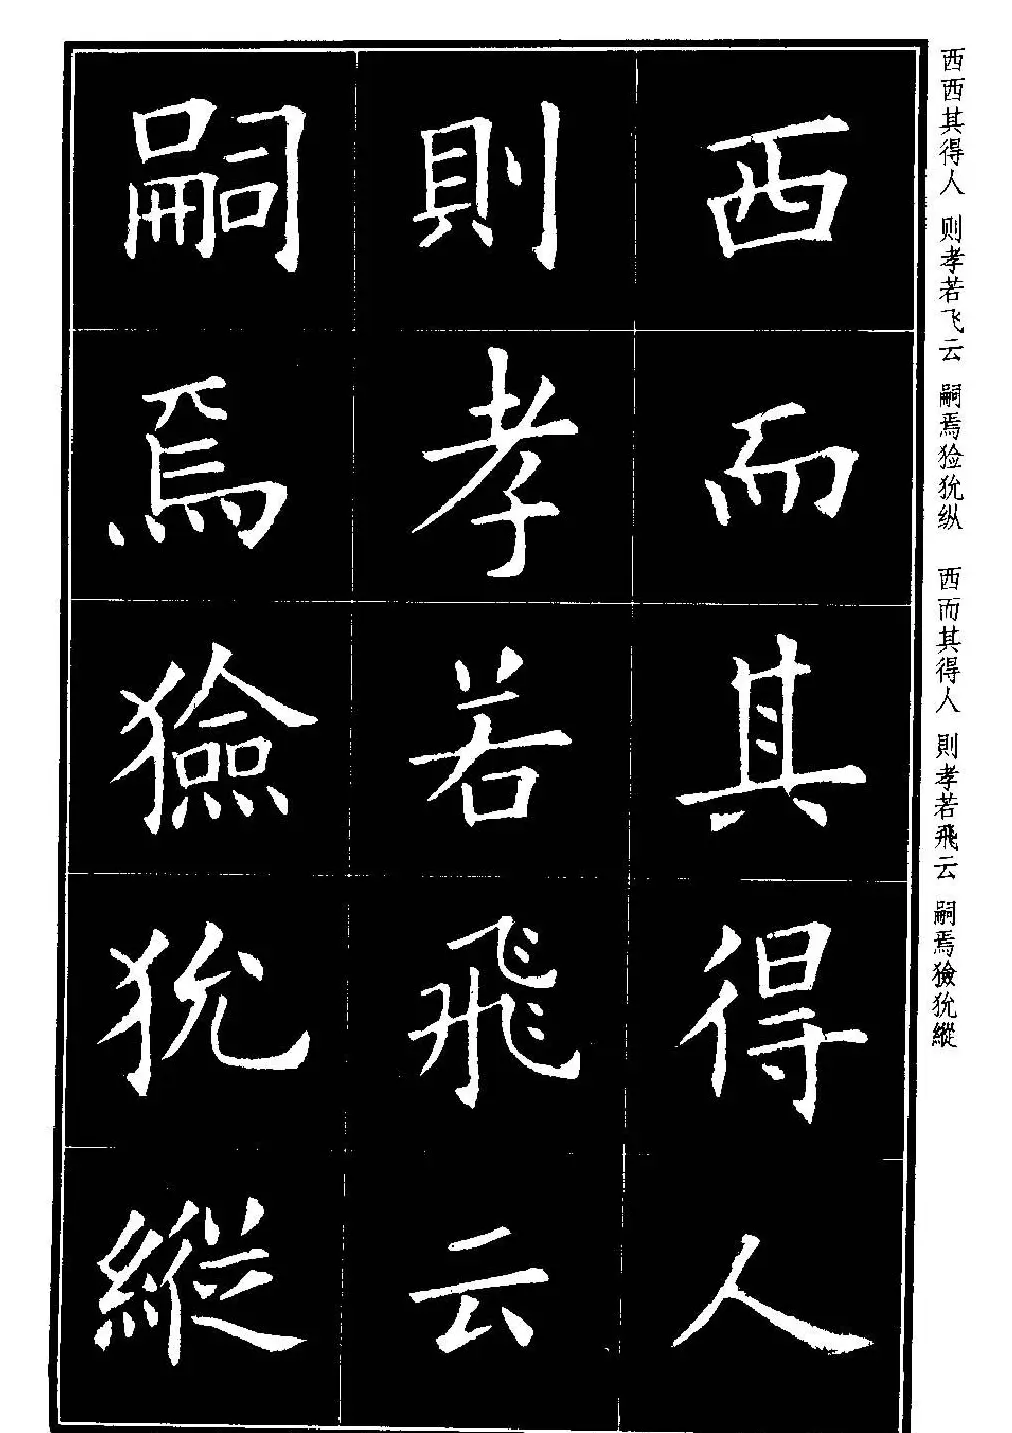 西西其得人 则孝若飞云 嗣焉猃狁纵 西而其得人 則孝若飛云 嗣焉獫狁縱
西而其得人
則孝若飛云
嗣焉獫狁縱